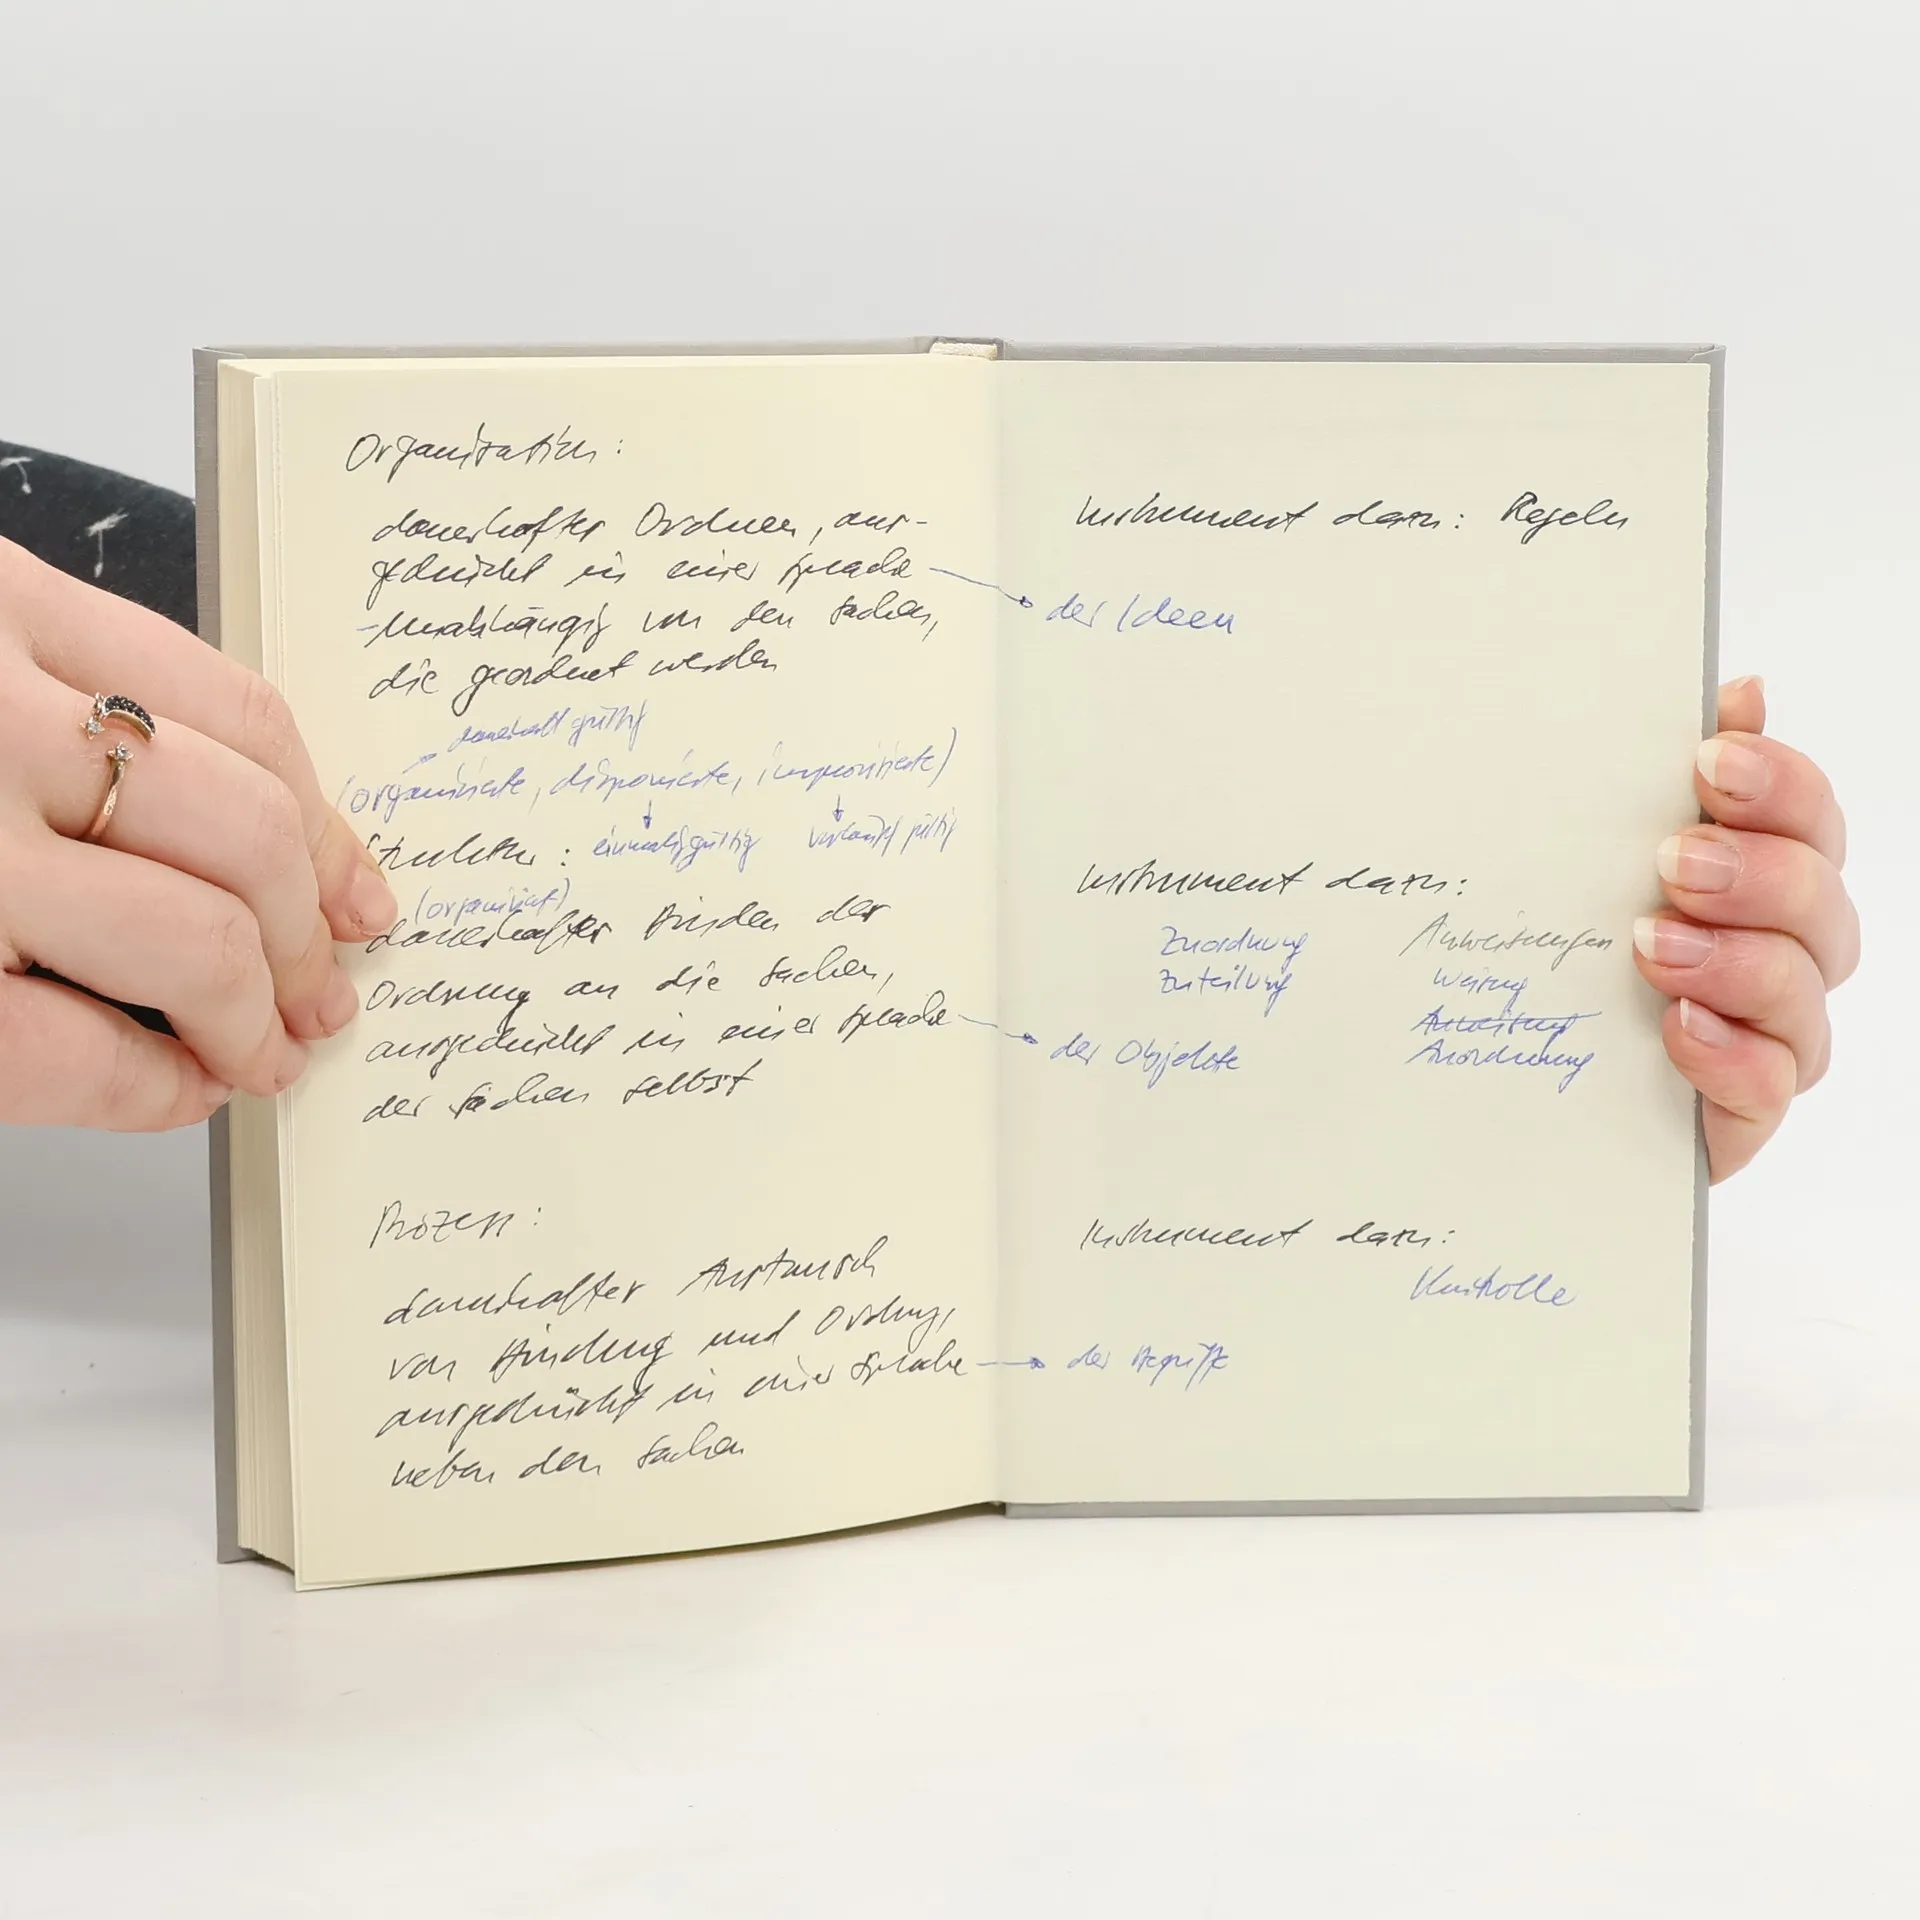 Organisation:
dauerhafter Ordnen, aus-
gedrückt in einer Sprache
- Unabhängig von den Sachen,
die geordnet werden
dauerhaft gültig
(organisierte, disponierte, improvisierte)
Struktur: einmalig gültig vorläufig gültig
(organisiert)
dauerhaftes Binden der
Ordnung an die Sachen,
ausgedrückt in einer Sprache
der Sachen selbst
Prozess:
dauerhafter Austausch
von Bindung und Ordnung,
ausgedrückt in einer Sprache
neben den Sachen
Instrument dazu: Regeln
der Ideen
Instrument dazu:
Zuordnung Anweisungen
Zuteilung Weisung
Anweisung
der Objekte Anordnung
Instrument dazu:
Kontrolle
der Begriffe